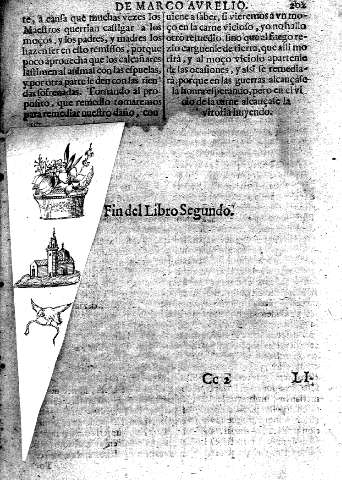 DE MARCO AVRELIO. 202
te, a causa que muchas vezes los
Maestros querrian castigar a los
moços, y los padres, y madres los
hazen ser en ello remissos, porque
poco aprouecha que los calcañares
lastimen al animal con las espuelas,
y por otra parte le den con las rien-
das sofrenadas. Tornando al pro-
posito, que remedio tomaremos
para remediar nuestro daño, con
uiene a saber, si vieremos a vn mo-
ço en la carne vicioso, yo no hallo
otro remedio, sino que al fuego re-
zio carguenle de tierra, que assi mo
rirà, y al moço vicioso apartenle
de las ocasiones, y assi se remedia-
rà, porque en las guerras alcançase
la honra esperando, pero en el vi
cio de la carne alcançase la
vitoria huyendo.
Fin del Libro Segundo.
Cc 2 LI-